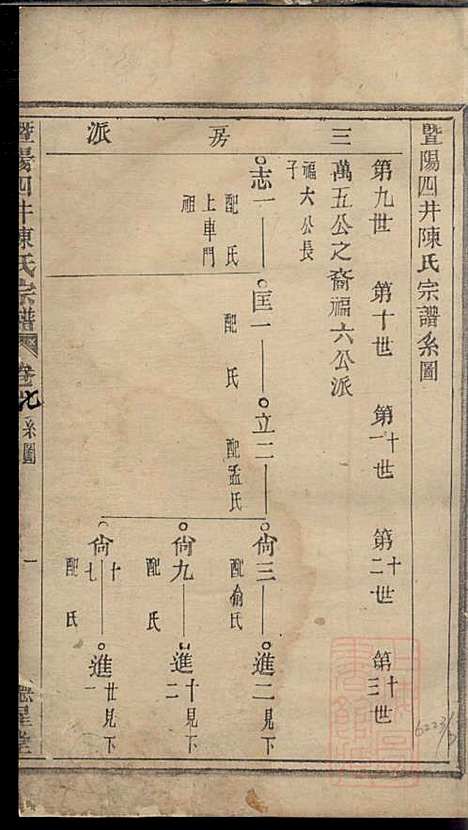 暨陽四井陳氏宗譜系圖
第九世 第十世 第十一世 第十二世 第十三世
三房派
萬五公之裔福六公派
福六公長子
志一 配氏 上車門祖
匡一 配氏
立二 配孟氏
尙三 配俞氏
進二 見下
尙九 配氏
進十二 見下
尙十七 配氏
進廿一 見下
暨陽四井陳氏宗譜 卷七 系圖 一
6223/3